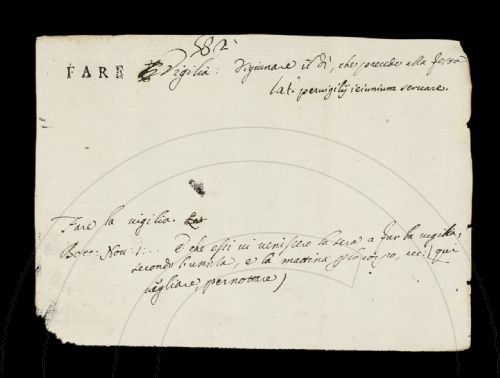 582
FARE Vigilia: digiunare il dì, che precede alla festa
lat. pervigilij ieiunium servare.
Fare la vigilia.
Bocc: Nov: 1:.. E che essi vi venissero la sera a far la vigilia,
secondo l'usanza, e la mattina corpo, ecc: (qui
vegliare, pernottare)